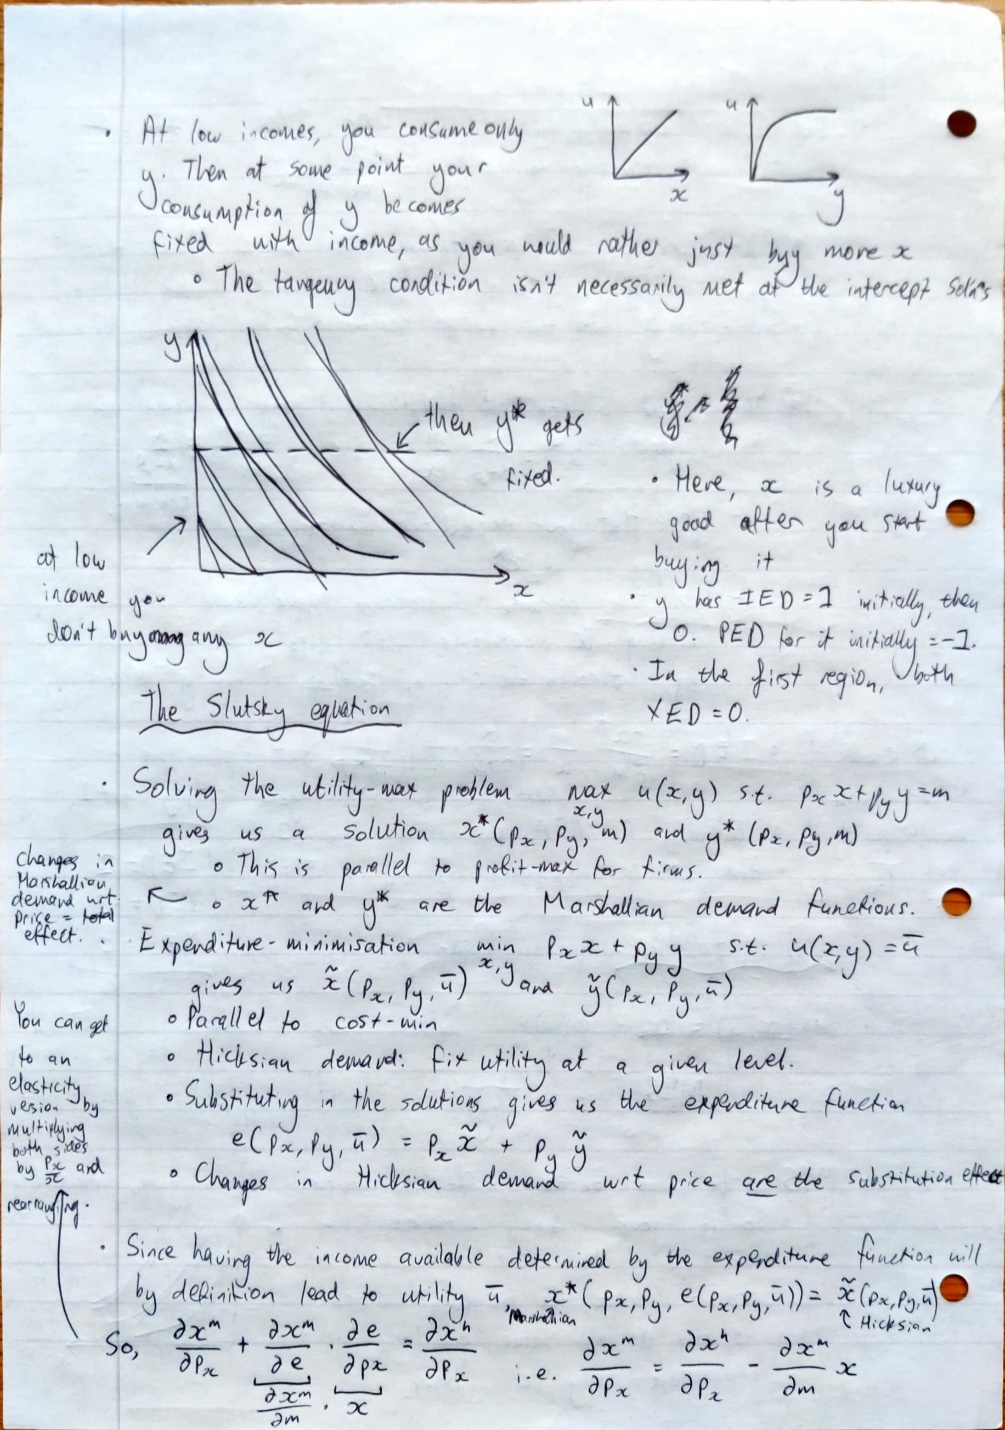 u
x
u
y
• At low incomes, you consume only
y. Then at some point your
consumption of y becomes
fixed with income, as you would rather just buy more x
◦ The tangency condition isn't necessarily met at the intercept solns
y
x
then y* gets
fixed.
at low
income you
don't buy any x
• Here, x is a luxury
good after you start
buying it
• y has IED = 1 initially, then
0. PED for it initially = -1.
• In the first region, both
XED = 0.
The Slutsky equation
• Solving the utility-max problem max x,y u(x,y) s.t. pₓx + p_y y = m
gives us a solution x*(pₓ, p_y, m) and y*(pₓ, p_y, m)
◦ This is parallel to profit-max for firms.
◦ x* and y* are the Marshallian demand functions.
changes in
Marshallian
demand wrt
price = total
effect.
• Expenditure-minimisation min x,y pₓx + p_y y s.t. u(x,y) = ū
gives us x̃(pₓ, p_y, ū) and ỹ(pₓ, p_y, ū)
◦ Parallel to cost-min
◦ Hicksian demand: fix utility at a given level.
◦ Substituting in the solutions gives us the expenditure function
e(pₓ, p_y, ū) = pₓx̃ + p_y ỹ
◦ Changes in Hicksian demand wrt price are the substitution effect
You can get
to an
elasticity
version by
multiplying
both sides
by pₓ/x and
rearranging.
• Since having the income available determined by the expenditure function will
by definition lead to utility ū, x*(pₓ, p_y, e(pₓ, p_y, ū)) = x̃(pₓ, p_y, ū)
Marshallian
↑ Hicksian
So, ∂xᵐ/∂pₓ + ∂xᵐ/∂e · ∂e/∂pₓ = ∂xʰ/∂pₓ i.e. ∂xᵐ/∂pₓ = ∂xʰ/∂pₓ - ∂xᵐ/∂m x
∂xᵐ/∂m · x